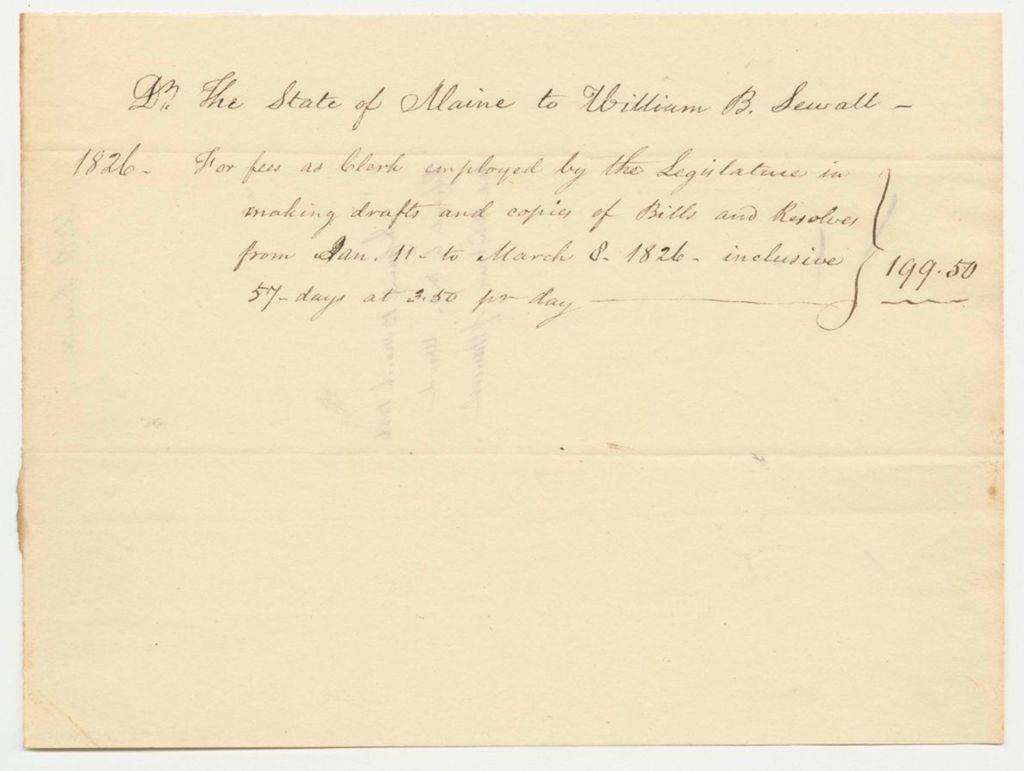 Dr. The State of Maine to William B. Sewall -
1826 - For fees as Clerk employed by the Legislature in
making drafts and copies of Bills and Resolves
from Jan. 11 - to March 8 - 1826 - inclusive
57 - days at 3.50 pr day
199.50